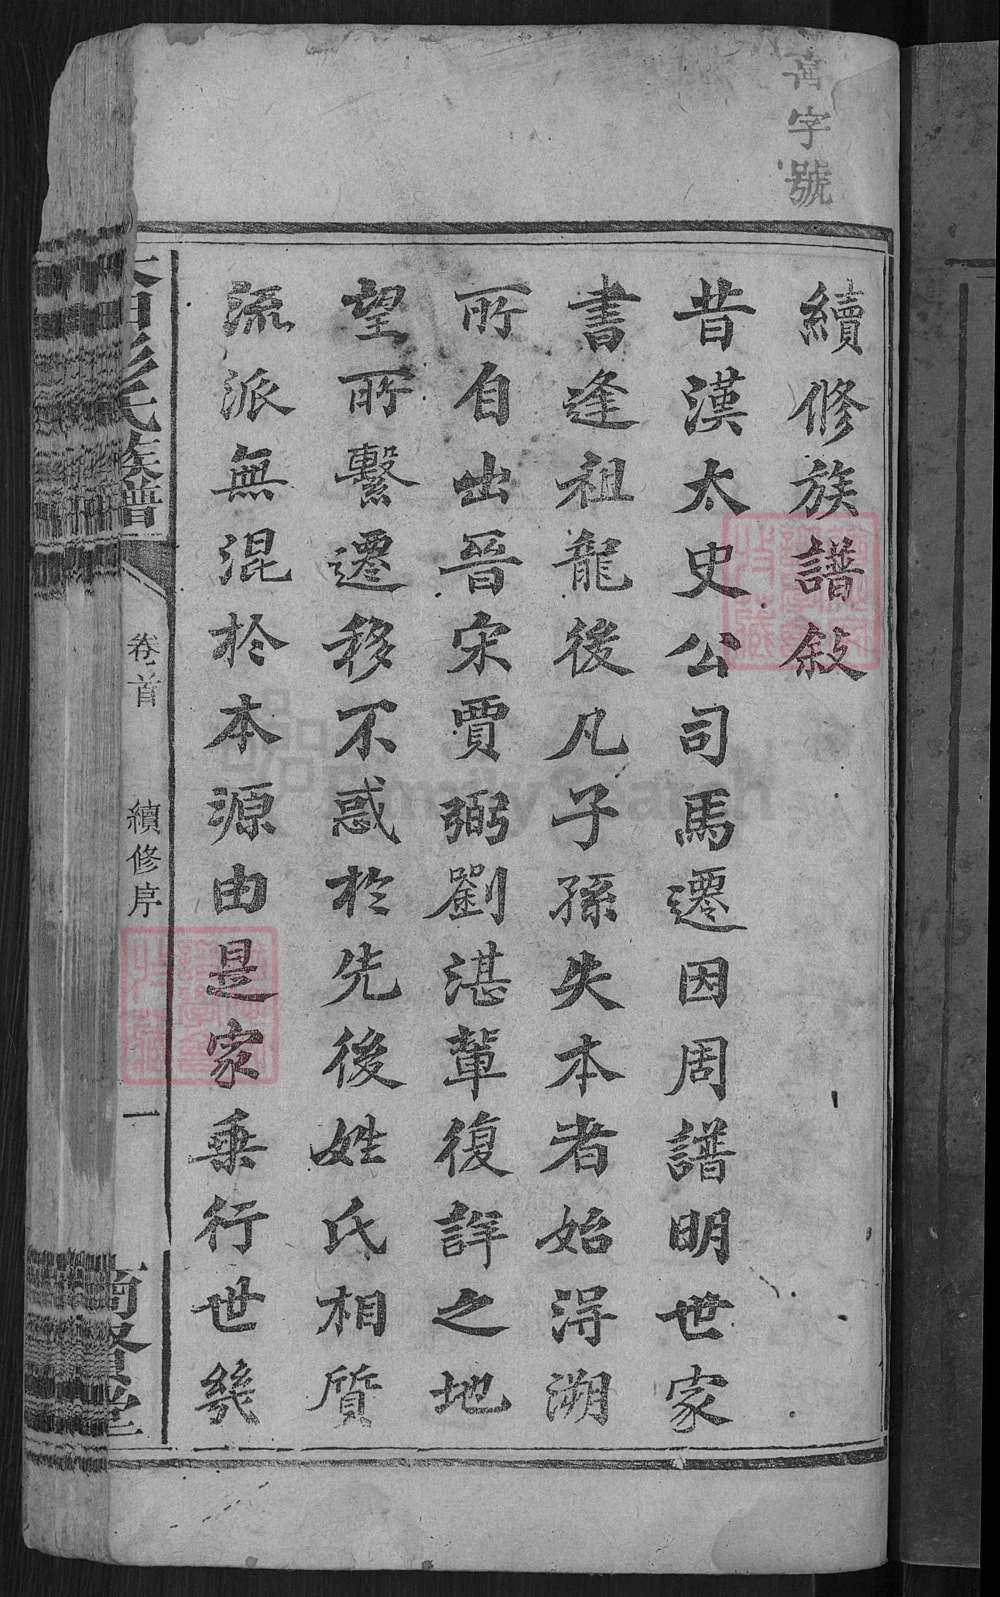 字號
續修族譜敍
昔漢太史公司馬遷因周譜明世家
書逢祖龍後凡子孫失本者始得溯
所自出晉宋賈弼劉湛輩復詳之地
望所繫遷移不惑於先後姓氏相質
流派無混於本源由是家乘行世幾
彭氏族譜
卷首
續修序
一
堂
FamilySearch